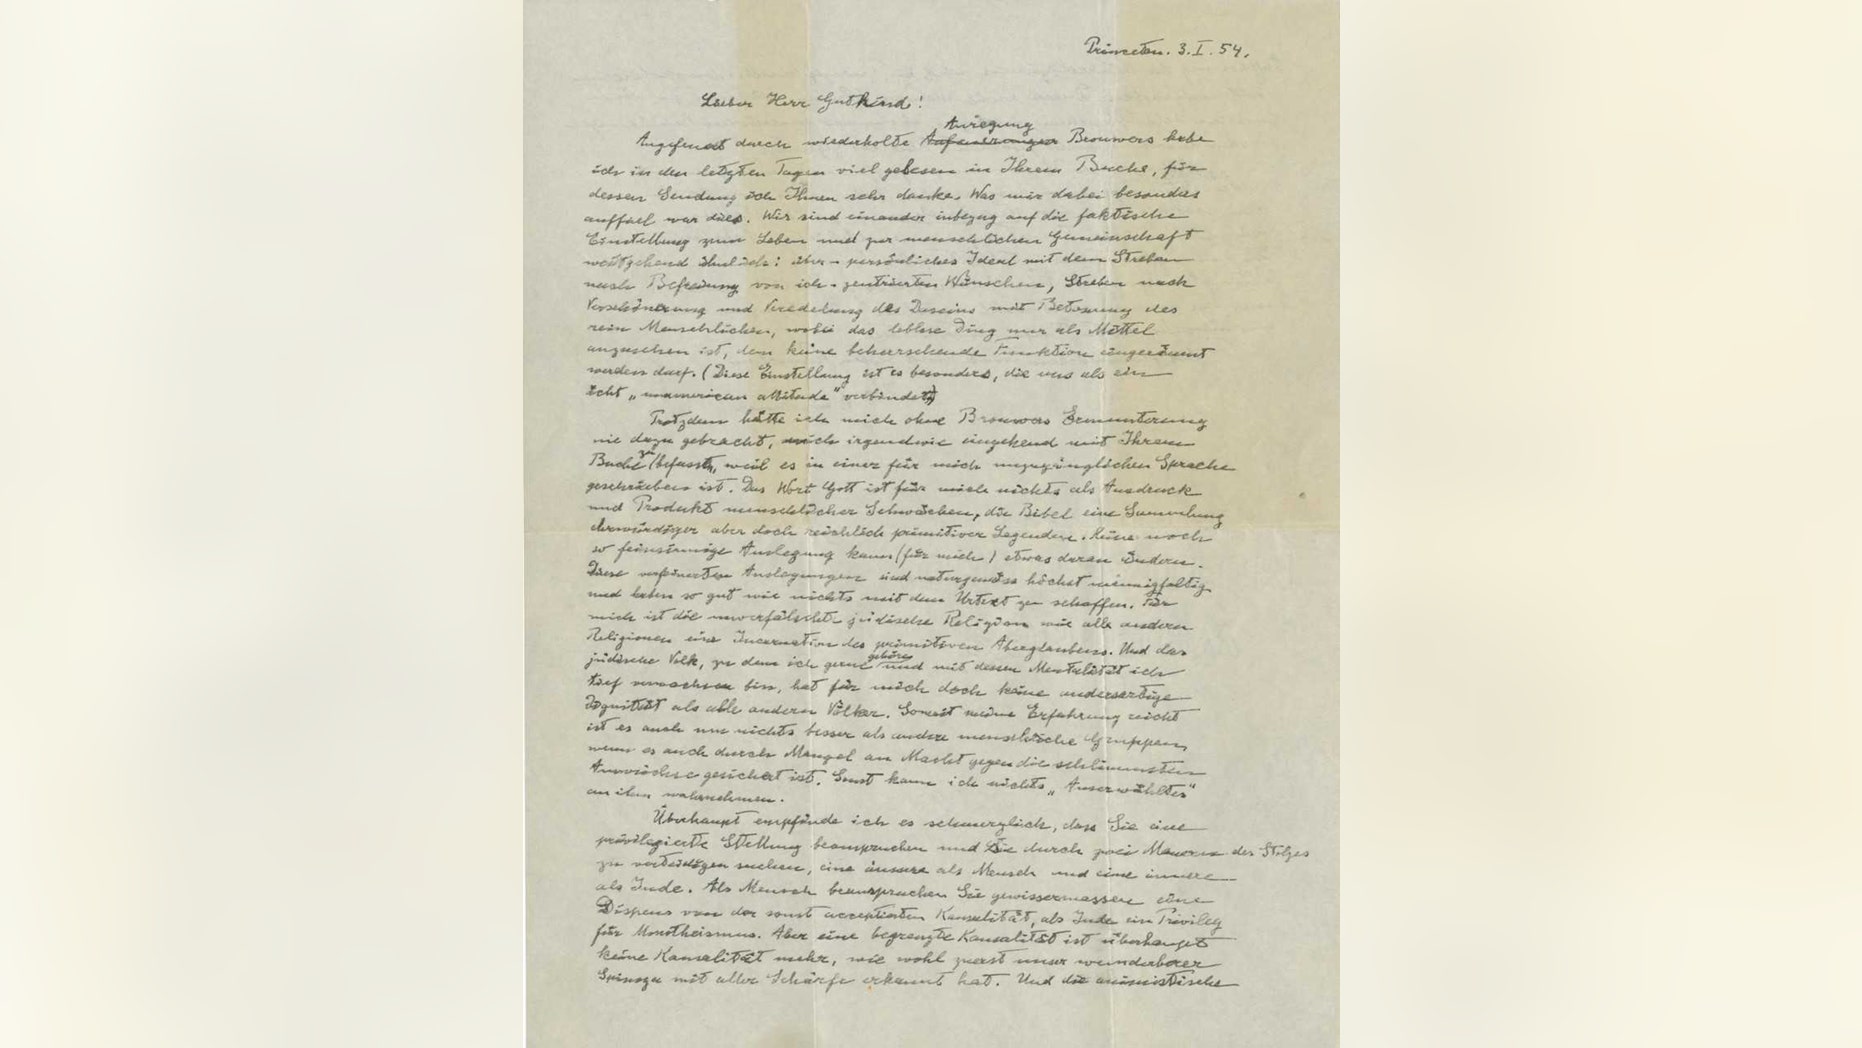 Princeton. 3. I. 54.
Lieber Herr Gutkind!
Anregung
Angefeuert durch wiederholte Brouwers habe
ich in den letzten Tagen viel gelesen in Ihrem Buche, für
dessen Sendung ich Ihnen sehr danke. Was mir dabei besonders
auffiel war dies. Wir sind einander inbezug auf die faktische
Einstellung zum Leben und zur menschlichen Gemeinschaft
weitgehend ähnlich: über-persönliches Ideal mit dem Streben
nach Befreiung von ich-zentrierten Wünschen, Streben nach
Verschönerung und Veredelung des Daseins mit Betonung des
rein Menschlichen, wobei das leblose Ding nur als Mittel
anzusehen ist, dem keine beherrschende Funktion eingeräumt
werden darf. (Diese Einstellung ist es besonders, die uns als ein
echt „unamerican attitude" verbindet)
Trotzdem hätte ich mich ohne Brouwers Ermunterung
nie dazu gebracht, mich irgendwie eingehend mit Ihrem
Buche zu befassen, weil es in einer für mich unzugänglichen Sprache
geschrieben ist. Das Wort Gott ist für mich nichts als Ausdruck
und Produkt menschlicher Schwächen, die Bibel eine Sammlung
ehrwürdiger aber doch reichlich primitiver Legenden. Keine noch
so feinsinnige Auslegung kann (für mich) etwas daran ändern.
Diese verfeinerten Auslegungen sind naturgemäss höchst mannigfaltig
und haben so gut wie nichts mit dem Urtext zu schaffen. Für
mich ist die unverfälschte jüdische Religion wie alle andern
Religionen eine Incarnation des primitiven Aberglaubens. Und das
jüdische Volk, zu dem ich gerne gehöre und mit dessen Mentalität ich
tief verwachsen bin, hat für mich doch keine andersartige
Dignität als alle andern Völker. Soweit meine Erfahrung reicht
ist es auch um nichts besser als andere menschliche Gruppen,
wenn es auch durch Mangel an Macht gegen die schlimmsten
Auswüchse gesichert ist. Sonst kann ich nichts „Auserwähltes"
an ihm wahrnehmen.
Überhaupt empfinde ich es schmerzlich, dass Sie eine
privilegierte Stellung beanspruchen und sie durch zwei Mauern des Stolzes
zu verteidigen suchen, eine äussere als Mensch und eine innere
als Jude. Als Mensch beanspruchen Sie gewissermassen eine
Dispens von der sonst acceptierten Kausalität, als Jude ein Privileg
für Monotheismus. Aber eine begrenzte Kausalität ist überhaupt
keine Kausalität mehr, wie wohl zuerst unser wunderbarer
Spinoza mit aller Schärfe erkannt hat. Und die animistische